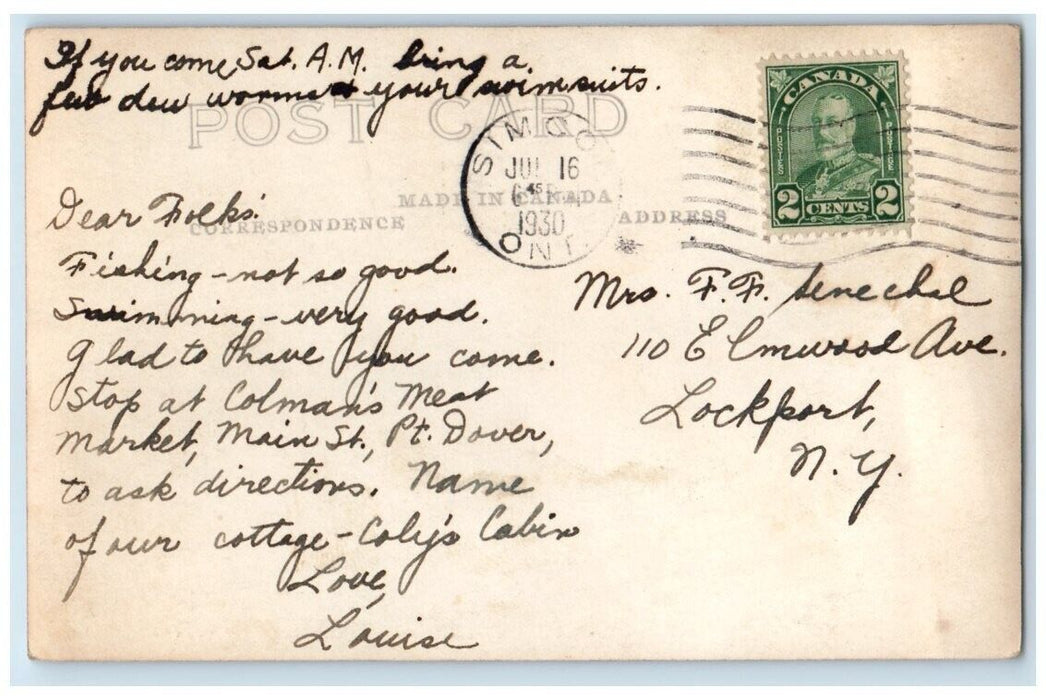 If you come Sat. A.M. bring a
few dew worms & your swimsuits.
POST CARD
CANADA
POSTES
POSTAGE
2 CENTS 2
SIMCOE
JUL 16
1930
ONT.
MADE IN CANADA
CORRESPONDENCE
ADDRESS
Dear Folks:
Fishing - not so good.
Swimming - very good.
Glad to have you come.
Stop at Colman's Meat
Market, Main St., Pt. Dover,
to ask directions. Name
of our cottage - Coly's Cabin
Love,
Louise
Mrs. F. F. Senechal
110 Elmwood Ave.
Lockport,
N. Y.